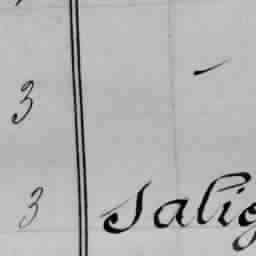 3 -
3 Salig